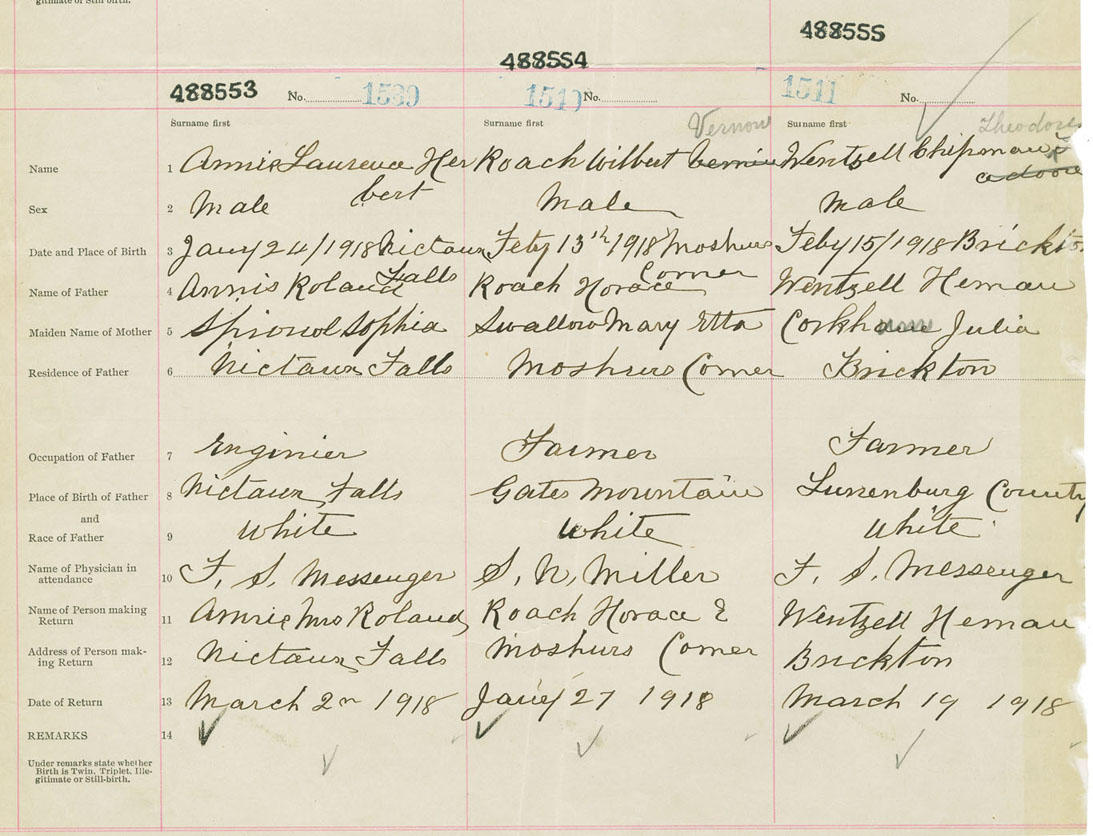 gitimate or Still-birth.
488553 488554 488555
No. 1539 1540 No. 1541 No.
Surname first Surname first Surname first
Vernon Theodore
Name 1 Annis Laurence Her Roach Wilbert Wentzell Chipman
bert
Sex 2 Male Male male
Date and Place of Birth 3 Jany 24/1918 Nictaux Feby 13th 1918 Moshurs Feby 15/1918 Brickton
Falls Corner
Name of Father 4 Annis Roland Roach Horace Wentzell Heman
Maiden Name of Mother 5 Sophia Swallow Mary Etta Julia
Residence of Father 6 Nictaux Falls Moshurs Corner Brickton
Occupation of Father 7 Enginier Farmer Farmer
Place of Birth of Father 8 Nictaux Falls Gates Mountain Lunenburg County
and
Race of Father 9 White White White
Name of Physician in
attendance 10 F. S. Messenger S. N. Miller F. S. Messenger
Name of Person making
Return 11 Annis Mrs Roland Roach Horace E Wentzell Heman
Address of Person mak-
ing Return 12 Nictaux Falls Moshurs Corner Brickton
Date of Return 13 March 2n 1918 Jany 27 1918 March 19 1918
REMARKS 14
Under remarks state whether
Birth is Twin, Triplet, Ille-
gitimate or Still-birth.